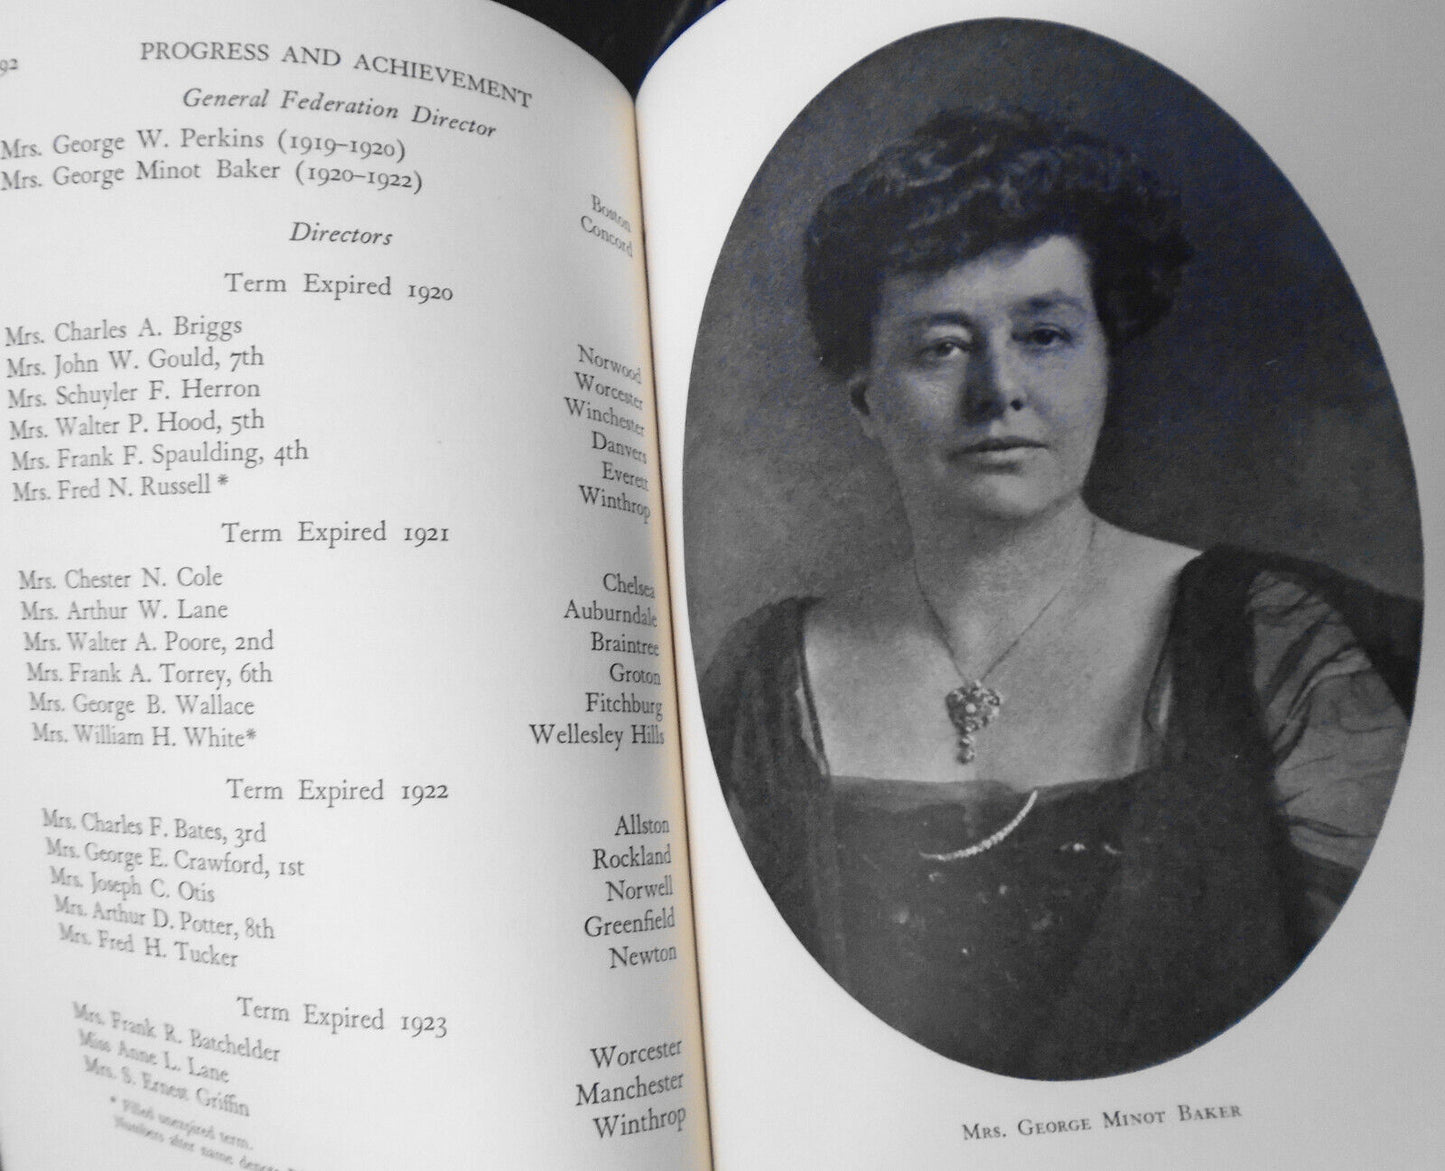 92
PROGRESS AND ACHIEVEMENT
General Federation Director
Mrs. George W. Perkins (1919–1920) Boston
Mrs. George Minot Baker (1920–1922) Concord
Directors
Term Expired 1920
Mrs. Charles A. Briggs Norwood
Mrs. John W. Gould, 7th Worcester
Mrs. Schuyler F. Herron Winchester
Mrs. Walter P. Hood, 5th Danvers
Mrs. Frank F. Spaulding, 4th Everett
Mrs. Fred N. Russell * Winthrop
Term Expired 1921
Mrs. Chester N. Cole Chelsea
Mrs. Arthur W. Lane Auburndale
Mrs. Walter A. Poore, 2nd Braintree
Mrs. Frank A. Torrey, 6th Groton
Mrs. George B. Wallace Fitchburg
Mrs. William H. White* Wellesley Hills
Term Expired 1922
Mrs. Charles F. Bates, 3rd Allston
Mrs. George E. Crawford, 1st Rockland
Mrs. Joseph C. Otis Norwell
Mrs. Arthur D. Potter, 8th Greenfield
Mrs. Fred H. Tucker Newton
Term Expired 1923
Mrs. Frank R. Batchelder Worcester
Miss Anne L. Lane Manchester
Mrs. S. Ernest Griffin Winthrop
* Filled unexpired term.
Numbers after name
MRS. GEORGE MINOT BAKER